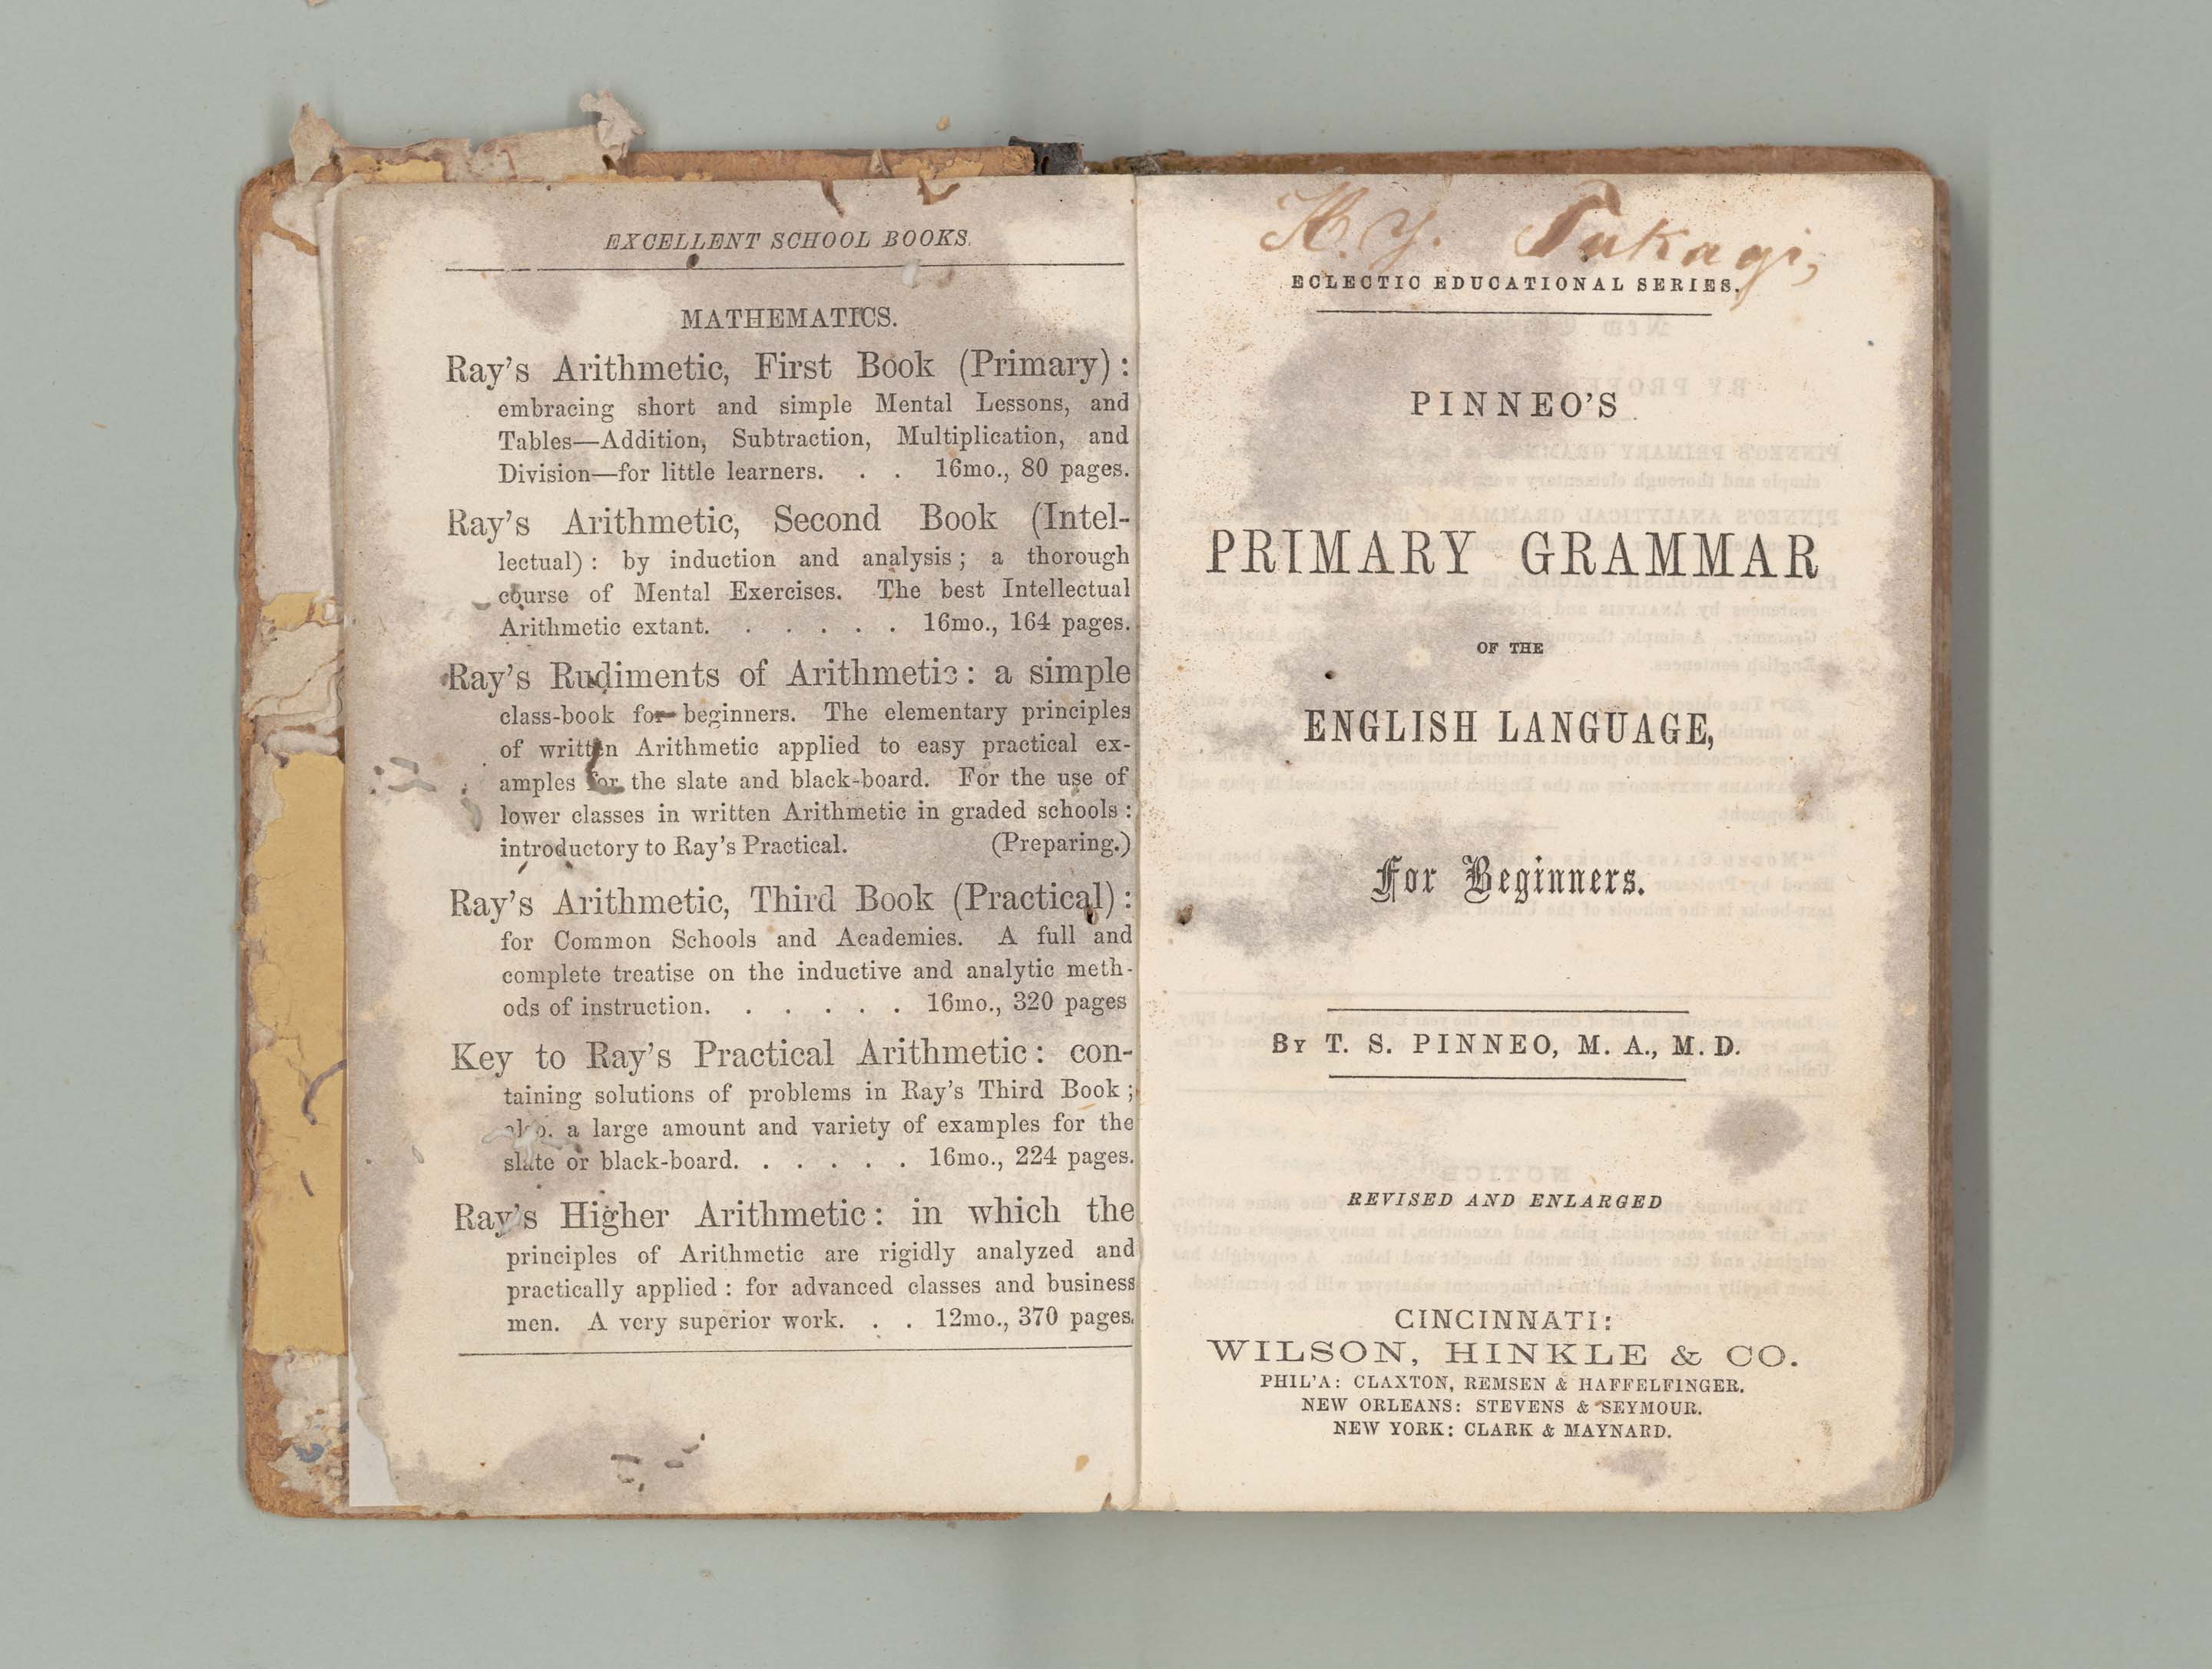 EXCELLENT SCHOOL BOOKS.
MATHEMATICS.
Ray's Arithmetic, First Book (Primary):
embracing short and simple Mental Lessons, and
Tables—Addition, Subtraction, Multiplication, and
Division—for little learners. . . 16mo., 80 pages.
Ray's Arithmetic, Second Book (Intel-
lectual): by induction and analysis; a thorough
course of Mental Exercises. The best Intellectual
Arithmetic extant. . . . . . 16mo., 164 pages.
Ray's Rudiments of Arithmetic: a simple
class-book for beginners. The elementary principles
of written Arithmetic applied to easy practical ex-
amples for the slate and black-board. For the use of
lower classes in written Arithmetic in graded schools:
introductory to Ray's Practical. (Preparing.)
Ray's Arithmetic, Third Book (Practical):
for Common Schools and Academies. A full and
complete treatise on the inductive and analytic meth-
ods of instruction. . . . . . 16mo., 320 pages
Key to Ray's Practical Arithmetic: con-
taining solutions of problems in Ray's Third Book;
also, a large amount and variety of examples for the
slate or black-board. . . . . . 16mo., 224 pages.
Ray's Higher Arithmetic: in which the
principles of Arithmetic are rigidly analyzed and
practically applied: for advanced classes and business
men. A very superior work. . . 12mo., 370 pages.
H. Y. Takagi,
ECLECTIC EDUCATIONAL SERIES.
PINNEO'S
PRIMARY GRAMMAR
OF THE
ENGLISH LANGUAGE,
For Beginners.
BY T. S. PINNEO, M. A., M. D.
REVISED AND ENLARGED
CINCINNATI:
WILSON, HINKLE & CO.
PHIL'A: CLAXTON, REMSEN & HAFFELFINGER.
NEW ORLEANS: STEVENS & SEYMOUR.
NEW YORK: CLARK & MAYNARD.